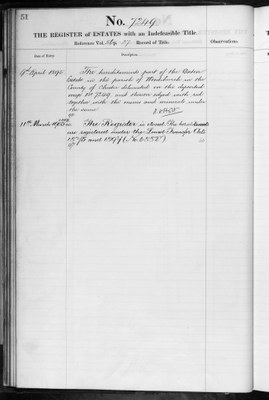 51
No. 7249
THE REGISTER of ESTATES with an Indefeasible Title
Reference Vol. Record of Title.
Observations.
Date of Entry.
Description.
9th April 1894
The hereditaments part of the
Estate in the parish of in the
County of Chester delineated on the deposited
map No 7249 and thereon edged with red
together with the mines and minerals under
the same
11th March
The Register is closed The
are registered under the Land Transfer Acts
1875 and 1897